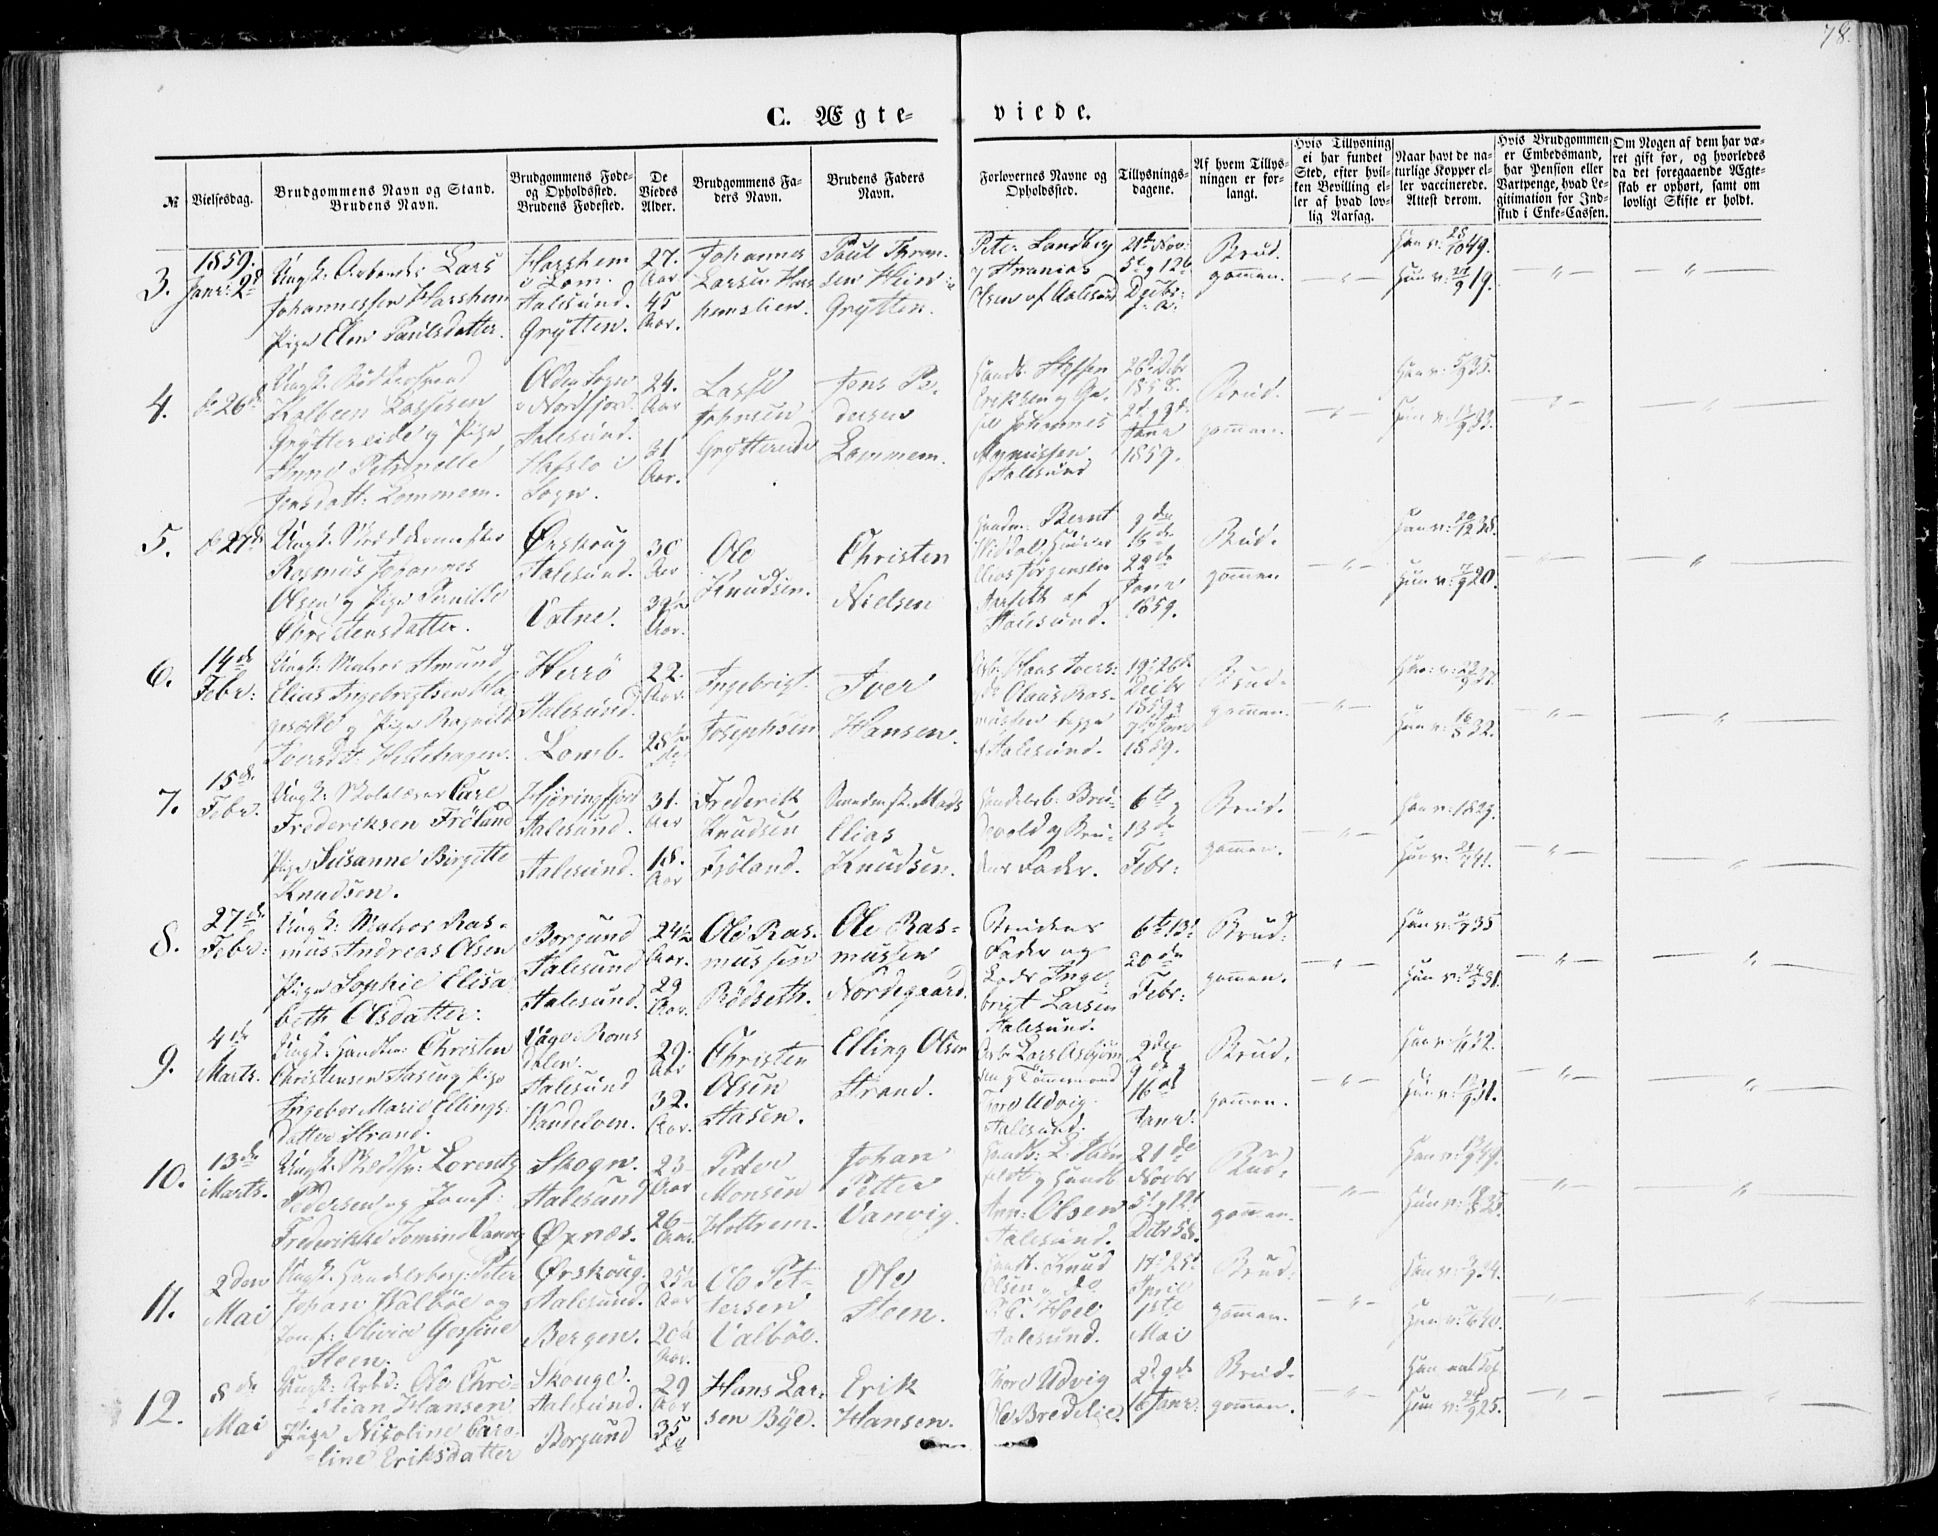 78.
C. Ægte= viede.
№
Vielsesdag.
Brudgommens Navn og Stand.
Brudens Navn.
Brudgommens Føde=
og Opholdssted.
Brudens Fødested.
De
Viedes
Alder.
Brudgommens Fa=
ders Navn.
Brudens Faders
Navn.
Forlovernes Navne og
Opholdssted.
Tillysnings=
dagene.
Af hvem Tillys=
ningen er for=
langt.
Hvis Tillysning
ei har fundet
Sted, efter hvil=
ken Bevilling el=
ler af hvad lov=
lig Aarsag.
Naar havt de na=
turlige Kopper el=
ler vaccinerede.
Attest derom.
Hvis Brudgommen
er Embedsmand,
har Pension eller
Vartpenge, hvad Le=
gitimation for Ind=
skud i Enke=Cassen.
Om Nogen af dem har væ=
ret gift før, og hvorledes
da det foregaaende Ægte=
skab er ophørt, samt om
lovligt Skifte er holdt.
3.
1859.
Janr: 2d
Ungk: Arbeider Lars
Johannessen Harshem
Pige Elen Paulsdatter.
Harshem
i Lom.
Aalesund.
Grytten.
27.
Aar
45
Aar.
Johannes
Larsen Hars
hemslien.
Paul
Grytten.
Peter Landberg
Olsen af Aalesund
21de Nov:
5t g 12t
Brud.
gommen.
Han v: 49.
Hun v: 19.
4.
26d
Ungk:
Gryttereide g Pige
Petronelle
Jensdatt: Lommem.
Olden Sogn
i Nordfjord.
Aalesund.
Hafslo i
Sogn.
24.
Aar
31
Aar.
Lasse
Johnsen
Grytereide
Jens Pe=
dersen
Lommem.
Handb: Steffen
Eriksen g
Johannes
Magnussen
Aalesund
26de
1858.
2d g 9d
Janr
1859.
Brud.
gommen.
Han v: 35.
Hun v: 33.
5.
27d
Ungk:
Rasmus Johannes
Olsen g Pige Pernille
Christensdatter.
Ørskoug
Aalesund.
Vatne.
30
Aar
39½
Aar.
Ole
Knudsen.
Christen
Nielsen
Bernt
Elias Jørgensen
Aarseth af
Aalesund.
9de
16de
23de
Janr
1859.
Brud.
gommen
Han v: 38.
Hun v: 20.
6.
14de
Febr:
Ungk: Matros Amund
Elias Ingebrigtsen
g Pige Ragnild
Iversdt: Hestehagen.
Herrö
Aalesund.
Lomb.
22.
Aar.
28½
Ingebrigt
Josephsen
Iver
Hansen.
Hans Ivers:
Claus Ras=
mussen begge
Aalesund.
19 g 26d
Decbr
1859 g
Janr
1859.
Brud.
gommen.
Han v: 37.
Hun v: 32.
7.
15de
Febr.
Ungk: Skolelærer Carl
Frederiksen Fröland
Pige Susanne Birgitte
Knudsen.
Hjöringfjord
Aalesund.
Aalesund.
31.
Aar
18.
Aar
Frederik
Knudsen
Fröland.
Mads
Elias
Knudsen.
Handelsb: Bru=
devold g Bru=
dens Fader.
6te g
13de
Febr:
Brud.
gommen.
Han v: 1829.
Hun v: 41.
8.
27de
Febr:
Ungk: Matros Ras=
mus Andreas Olsen
Pige Sophie Elisa
beth Olsdatter.
Borgund
Aalesund
Aalesund.
24½
Aar.
29
Aar.
Ole Ras.
mussen
Rödseth.
Ole Ras=
mussen
Nordegaard.
Brudens
Fader og
Lods Inge=
brigt Larsen
Aalesund.
6te 13de
20de
Febr:
Brud.
gommen.
Han v: 35
Hun v: 31.
9.
4de
Marts.
Ungk: Handlm: Christen
Christensen Aasen g Pige
Ingebor Marie Ellings=
datter Strand.
Vaage i Roms
dalen.
Aalesund
Vanelven.
29.
Aar
32.
Aar.
Christen
Olsen
Aasen.
Elling Olsen
Strand.
Lars Asbjörn
sen g Tömmermand
Thore Udvig
Aalesund.
2den
9de g
16de
Janr:
Brud.
gommen.
Han v: 32.
Hun v: 31.
10.
13de
Marts.
Ungk: Lorentz
Pedersen og Jomf:
Frederikke Vanvig
Skogn.
Aalesund
Öxnes.
23
Aar
26
Aar.
Peder
Monsen
Holtrem.
Johan
Petter
Vanvig.
Olsen
Aalesund.
21de
Novbr
5t g 12t
Dcbr 58.
Brud.
gommen.
Han v: 49.
Hun v: 35.
11.
2den
Mai
Ungk: Handelsborg: Peter
Johan Walböe og
Jomf: Olivia Gesine
Steen.
Ørskoug.
Aalesund.
Bergen.
25½
Aar
20½
Aar.
Ole Pet=
tersen
Valböe.
Ole
Steen.
Handb: Knud
Olsen g do
Hoel
Aalesund.
17de 25de
April
1ste
Mai
Brud.
gommen.
Han v: 34.
Hun v: 40.
12.
8de
Mai
Ungk: Arbd: Ole Chri=
stian Hansen
Pige Nicoline Caro=
line Eriksdatter
Skouge.
Aalesund.
Borgund
29
Aar
35
Hans Lar=
sen Bye.
Erik
Hansen.
Thore Udvig
Ole Bredelie.
2d 9de
16 Janr:
Brud.
gommen.
Hun v: 25.